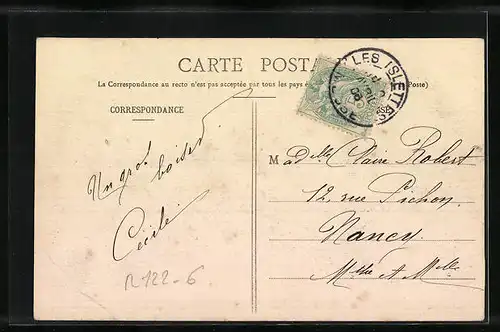 CARTE POSTA
(La Correspondance au recto n'est pas acceptée par tous les pays é Poste)
LES ISLETTES
CORRESPONDANCE
Un gros
baiser.
Cécile.
Madelle Claire Robert
12, rue Pichon,
Nancy.
Mthe et Mlle
R122-6